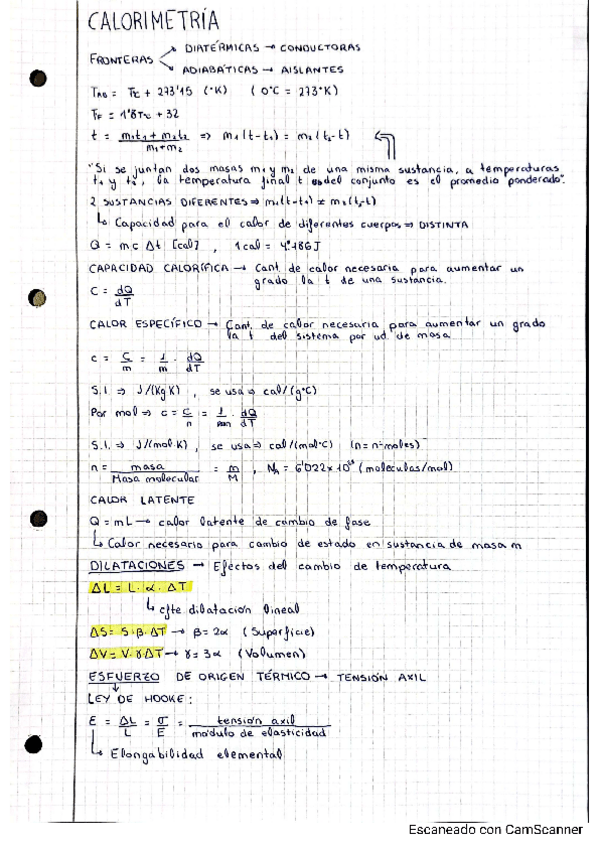 CALORIMETRÍA
FRONTERAS
DIATÉRMICAS → CONDUCTORAS
ADIABÁTICAS → AISLANTES
TAB = T°C + 273'15 (°K) (0°C = 273°K)
TF = 1'8T°C + 32
t = m1t1 + m2t2 / m1+m2 ⇒ m1(t-t1) = m2(t2-t)
"Si se juntan dos masas m1 y m2 de una misma sustancia, a temperaturas
t1 y t2, la temperatura final t del conjunto es el promedio ponderado".
2 SUSTANCIAS DIFERENTES ⇒ m1(t-t1) ≠ m2(t2-t)
↳ Capacidad para el calor de diferentes cuerpos ⇒ DISTINTA
Q = mc Δt [cal], 1cal = 4'186J
CAPACIDAD CALORÍFICA → Cant. de calor necesaria para aumentar un
grado la t de una sustancia.
C = dQ/dT
CALOR ESPECÍFICO → Cant. de calor necesaria para aumentar un grado
la t del sistema por ud. de masa
c = C/m = 1/m · dQ/dT
S.I. ⇒ J/(Kg K), se usa ⇒ cal/(g°C)
Por mol ⇒ c = C/n = 1/n · dQ/dT
S.I. ⇒ J/(mol·K), se usa ⇒ cal/(mol°C) (n = nº moles)
n = masa / Masa molecular = m/M, NA = 6'022x10²³ (moleculas/mol)
CALOR LATENTE
Q = mL → calor latente de cambio de fase
↳ Calor necesario para cambio de estado en sustancia de masa m
DILATACIONES → Efectos del cambio de temperatura
ΔL = L·α·ΔT
↳ cfte dilatación lineal
ΔS = S·β·ΔT → β = 2α (Superficie)
ΔV = V·γΔT → γ = 3α (Volumen)
ESFUERZO DE ORIGEN TÉRMICO → TENSIÓN AXIL
LEY DE HOOKE:
E = ΔL/L = σ/E = tensión axil / modulo de elasticidad
↳ Elongabilidad elemental
Escaneado con CamScanner